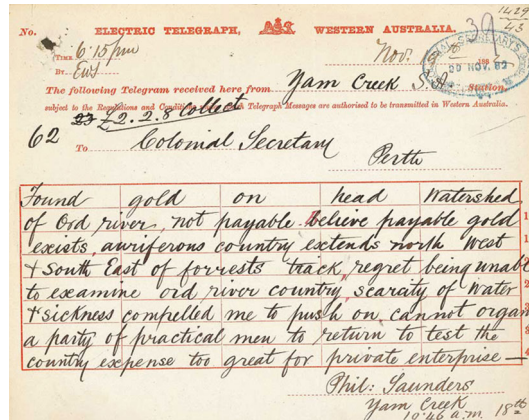 1429
45
No. ELECTRIC TELEGRAPH, WESTERN AUSTRALIA. 39
(TIME 6.15 pm
BY EWS
Nov. 188
COLONIAL SECRETARY'S
20 NOV. 82
The following Telegram received here from Yam Creek S.A. Station,
subject to the Regulations and Telegraph Messages are authorised to be transmitted in Western Australia.
23 £2.2.8 Collect
62 To Colonial Secretary
Perth
Found gold on head Watershed
of Ord river, not payable believe payable gold
exists, auriferous country extends north West
& South East of forrests track, regret being unabl
to examine ord river country, scarcity of Water
& sickness compelled me to push on, cannot organ
a party of practical men to return to test the
country expense too great for private enterprise —
Phil: Saunders
Yam Creek
10.46 a.m. 18th